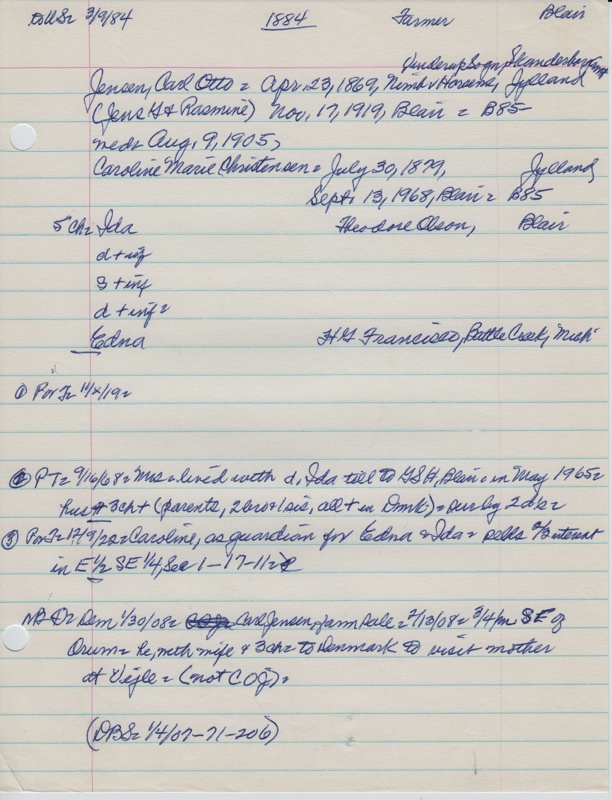 DBS= 3/9/84 1884 Farmer Blair
Vinderup Sogn, Skanderborg Amt
Jensen, Carl Otto = Apr. 23, 1869, Nim v Horsens, Jylland
(Jens G & Rasmine) Nov. 17, 1919, Blair = B85-
md= Aug. 9, 1905,
Caroline Marie Christensen = July 30, 1879, Jylland
Sept. 13, 1968, Blair = B85
5 ch= Ida Theodore Olson, Blair
d + inf
s + inf
d + inf =
Edna H G Francisco, Battle Creek, "Mich"
① PorT= 11/x/19=
② PT= 9/16/68= Mrs = lived with d, Ida till to GSH, Blair = in May 1965=
hus + 3ch + (parents, 2 bro & 1 sis, all + in Dmk) = sur by 2 ds=
③ PorT= Caroline, as guardian for Edna & Ida = sells interest
in E 1/2 SE 1/4, Sec 1-17-11=
Dem 1/30/08= Carl Jensen, farm sale = 2/13/08= 3/4 m SE of
Orum = he, with wife & 3ch= to Denmark to visit mother
at Vejle = (not COJ)=
(DBS= 1/4/07-71-206)